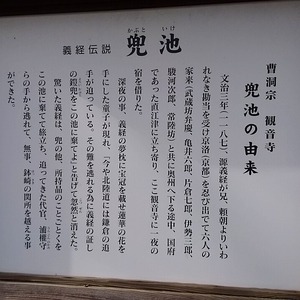 義経伝説 兜池
かぶと いけ
曹洞宗 観音寺
兜池の由来
文治三年(一一八七)、源義経が兄、頼朝よりいわ
れなき勘当を受け京洛(京都)を忍び出でて六人の
家来(武蔵坊弁慶、亀井六郎、片倉七郎、伊勢三郎、
駿河次郎、常陸坊)と共に奥州へ下る途中、国府
であった直江津に立ち寄り、ここ観音寺に一夜の
宿を借りた。
深夜の事、義経の夢枕に宝冠を載せ蓮華の花を
手にした童子が現れ、「今や北陸道には鎌倉の追
手が迫っている。その難を逃れる為に義経の証し
の鎧兜をこの池に棄てよ」と告げて忽然と消えた。
驚いた義経は、兜の他、所持品のことごとくを
この池に棄てて旅立ち、追ってきた代官、浦権守
らの手から逃れて、無事、鉢崎の関所を越える事
ができた。